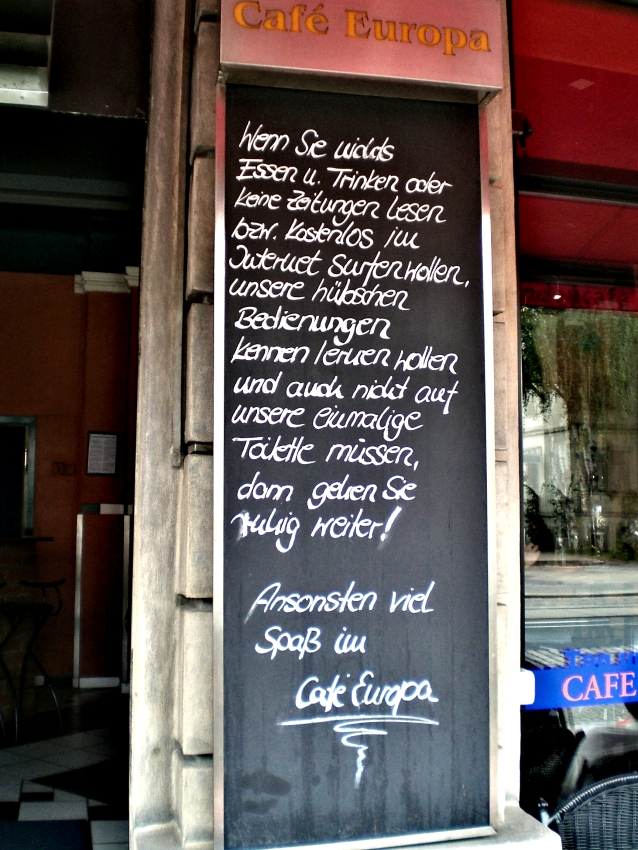 Café Europa
Wenn Sie nichts
Essen u. Trinken oder
keine Zeitungen lesen
bzw. kostenlos im
Internet surfen wollen,
unsere hübschen
Bedienungen
kennen lernen wollen
und auch nicht auf
unsere einmalige
Toilette müssen,
dann gehen Sie
ruhig weiter!
Ansonsten viel
Spaß im
Café Europa
CAFE